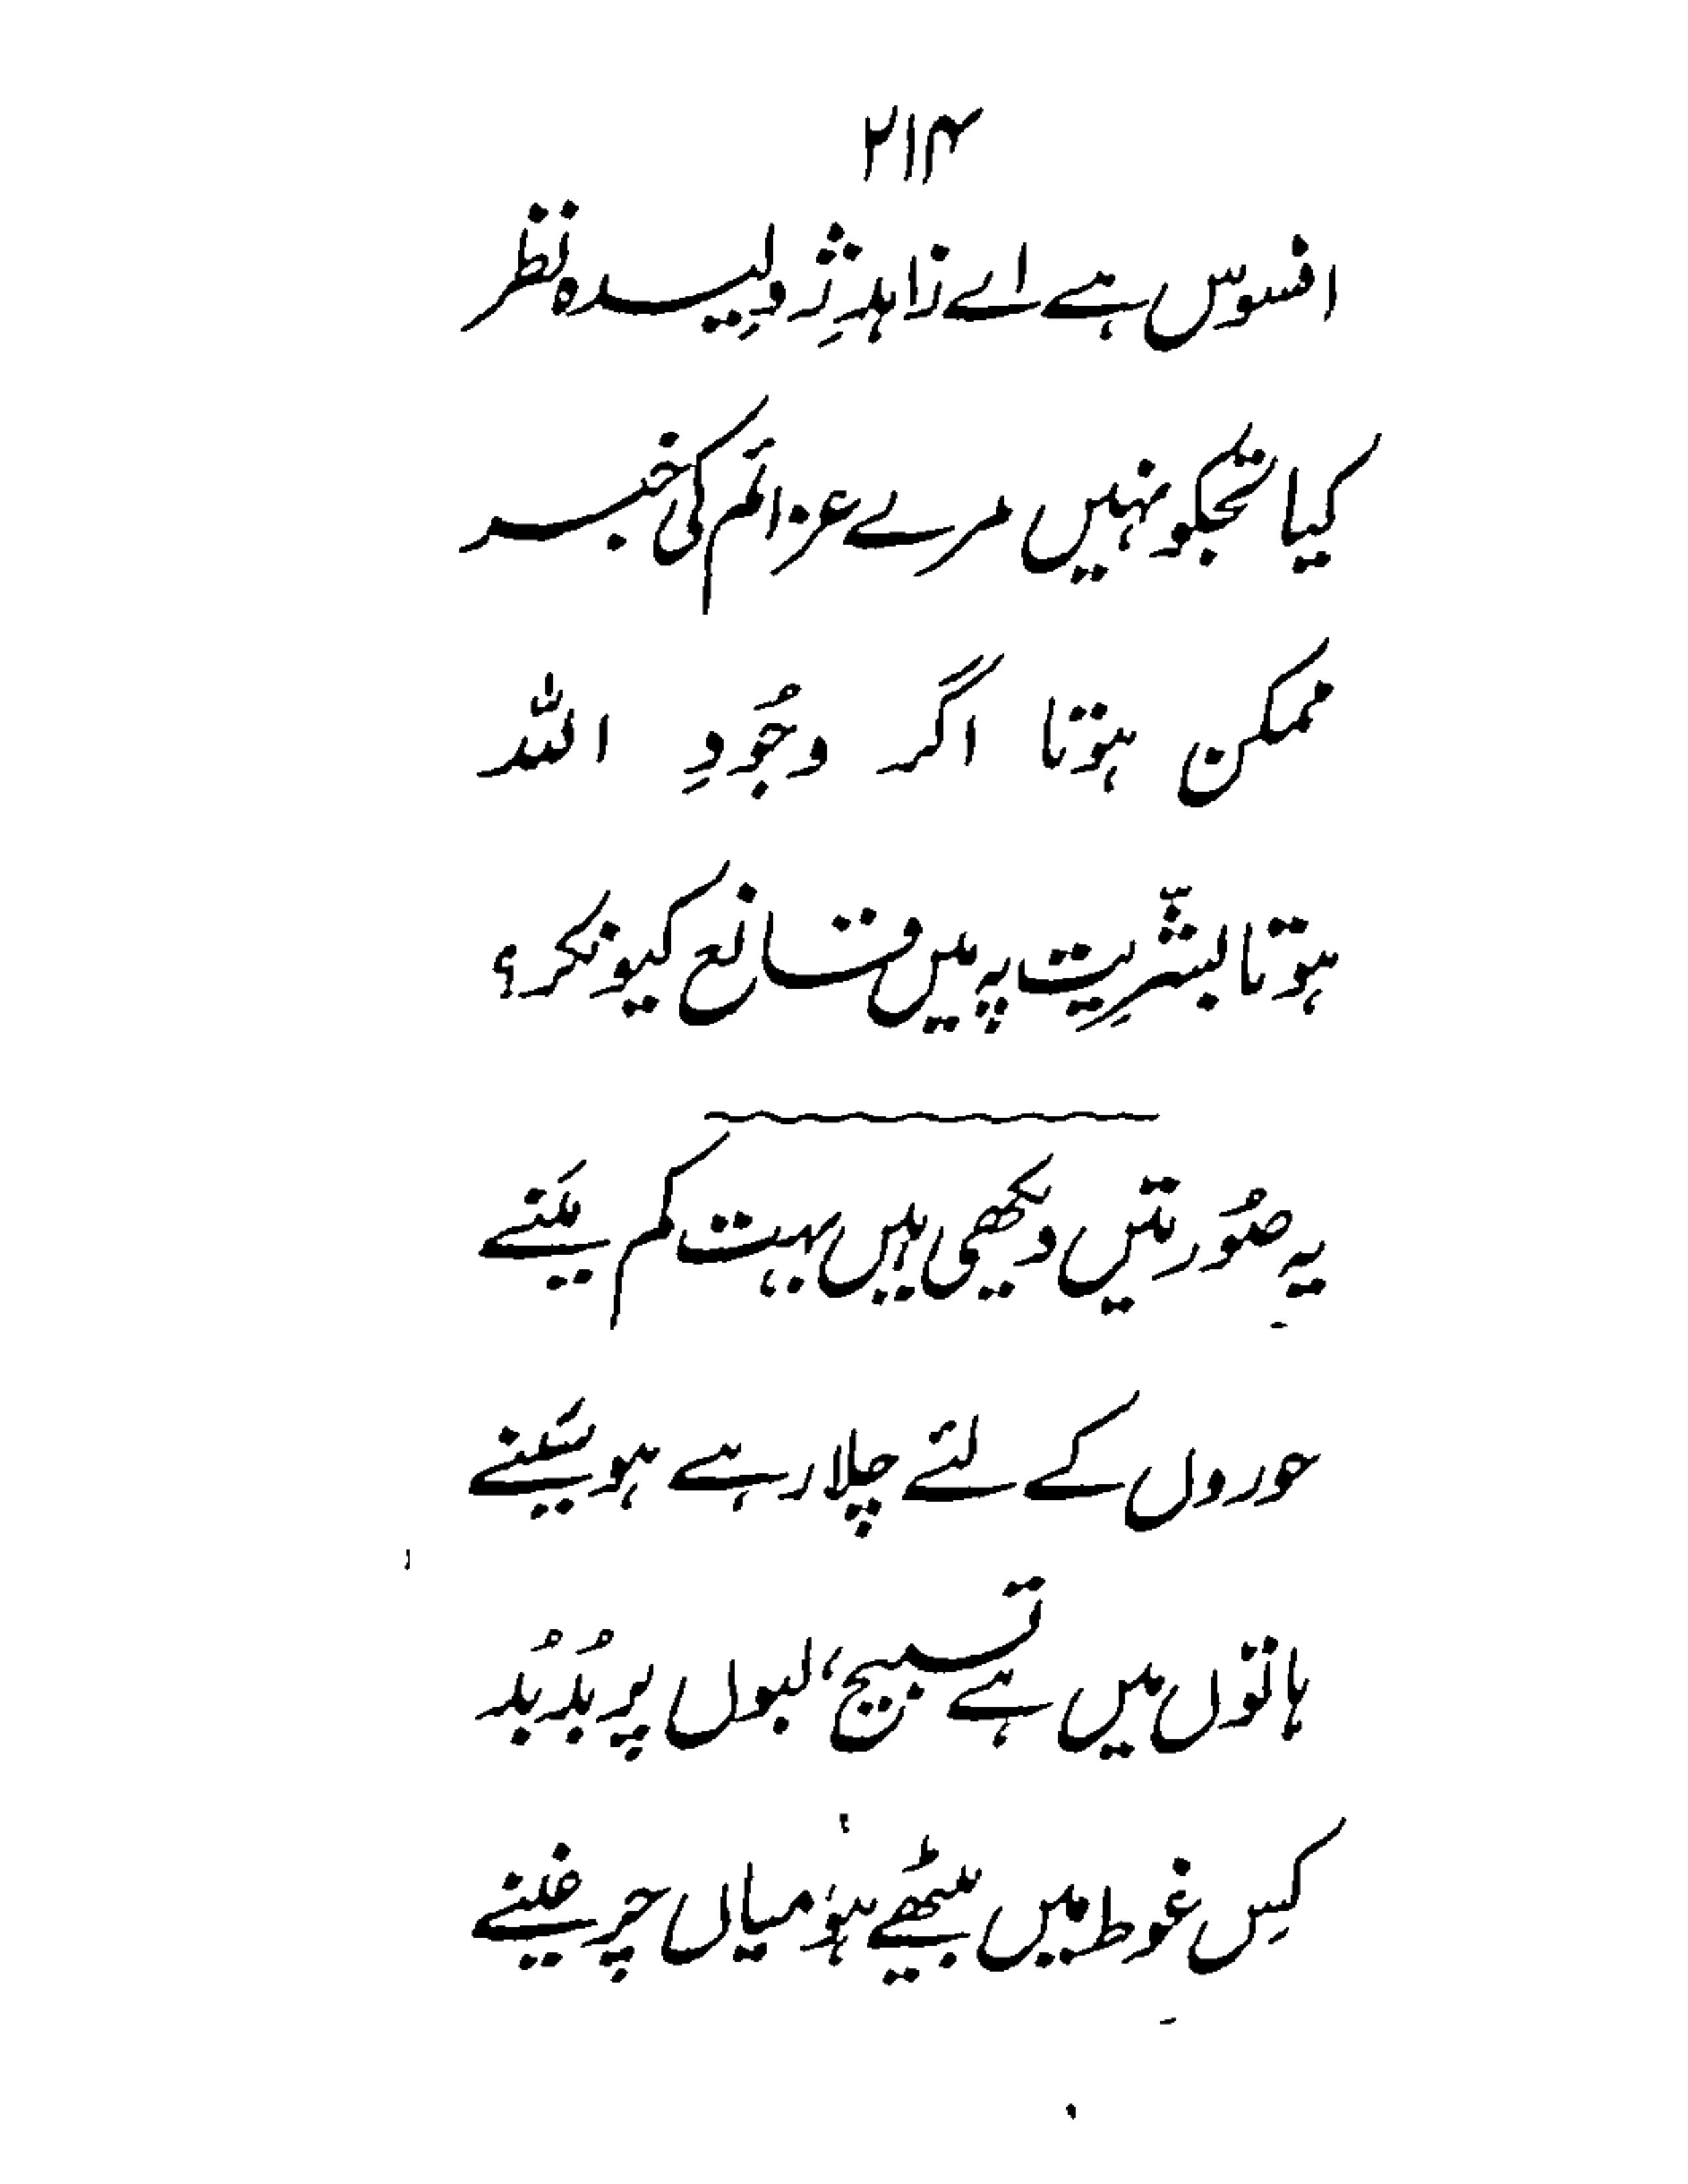 ۲۱۴
افسوس ہے اے زاہدِ ژولیدہ نظر
کیا تجکو نہیں مرے عزائم کی خبر
ممکن ہوتا اگر وجُودِ اللہ
ہوتا بشرِیّت پہ میں قانع کیونکر؟
یہ صُورتیں دیکھی ہیں بہت کم یَکنے
حوروں کے لئے چلا رہے ہو سَیکنے
ہاتوں میں ہے تسبیح، لبوں پر بُدبُد
کِس غوطہ میں بیٹھے ہو میاں چر خینے